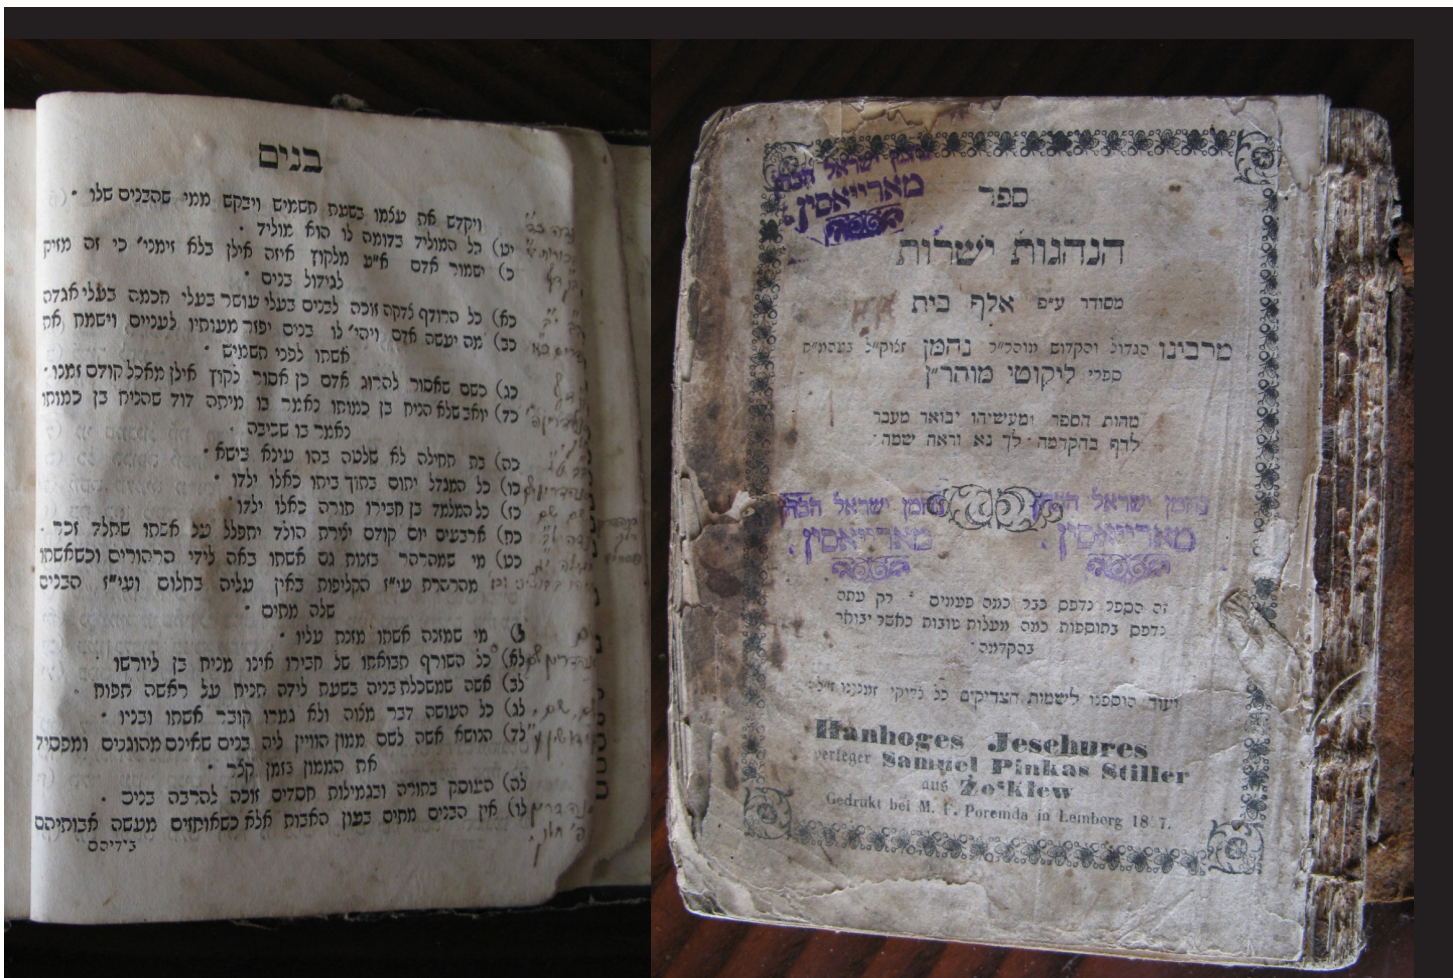 בנים
ויקדש את עצמו בשעת תשמיש ויבקש ממי שהבנים שלו •
יט) כל המוליד בדומה לו הוא מוליד •
כ) ישמור אדם א"ע מלקוץ איזה אילן בלא זימני' כי זה מזיק
לגידול בנים •
כא) כל הרודף צדקה זוכה לבנים בעלי עושר בעלי חכמה בעלי אגדה
כב) מה יעשה אדם ויהי' לו בנים יפזר מעותיו לעניים וישמח את
אשתו לפני תשמיש •
כג) כשם שאסור להרוג אדם כן אסור לקוץ אילן מאכל קודם זמנו •
כד) יואב שלא הניח בן כמותו נאמר בו מיתה דוד שהניח בן כמותו
נאמר בו שכיבה •
כה) בת תחילה לא שלטה בהו עינא בישא •
כו) כל המגדל יתום בתוך ביתו כאלו ילדו •
כז) כל המלמד בן חבירו תורה כאלו ילדו •
כח) ארבעים יום קודם יצירת הולד יתפלל על אשתו שתלד זכר •
כט) מי שמהרהר בזנות גם אשתו באה לידי הרהורים וכשאשתו
מהרהרת עי"ז הקליפות באין עליה בחלום ועי"ז הבנים
שלה מתים •
ל) מי שמזנה אשתו מזנת עליו •
לא) כל השורף תבואתו של חבירו אינו מניח בן ליורשו •
לב) אשה שמשכלת בניה בשעת לידה תניח על ראשה תפוח •
לג) כל העושה דבר מצוה ולא גמרו קובר אשתו ובניו •
לד) הנושא אשה לשם ממון הויין ליה בנים שאינם מהוגנים ומפסיד
את הממון בזמן קצר •
לה) העוסק בתורה ובגמילות חסדים זוכה להרבה בנים •
לו) אין הבנים מתים בעון האבות אלא כשאוחזים מעשה אבותיהם
בידיהם
נחמן ישראל הכהן
מארייאסין.
ספר
הנהגות ישרות
מסודר ע"פ אלף בית
מרבינו הגדול והקדוש מוהר"ר נחמן זצוק"ל בעהמ"ח
ספרי ליקוטי מוהר"ן
מהות הספר ומעשיהו יבואר מעבר
לדף בהקדמה • לך נא וראה שמה •
נחמן ישראל הכהן
מארייאסין.
נחמן ישראל הכהן
מארייאסין.
זה הספר נדפס כבר כמה פעמים • רק עתה
נדפס בתוספות כמה מעלות טובות כאשר יבואר
בהקדמה •
ועוד הוספנו לישמות הצדיקים כל צדיקי זמנינו
Hanhoges Jeschures
verleger Samuel Pinkas Stiller
aus Żołkiew
Gedrukt bei M. F. Poremda in Lemberg